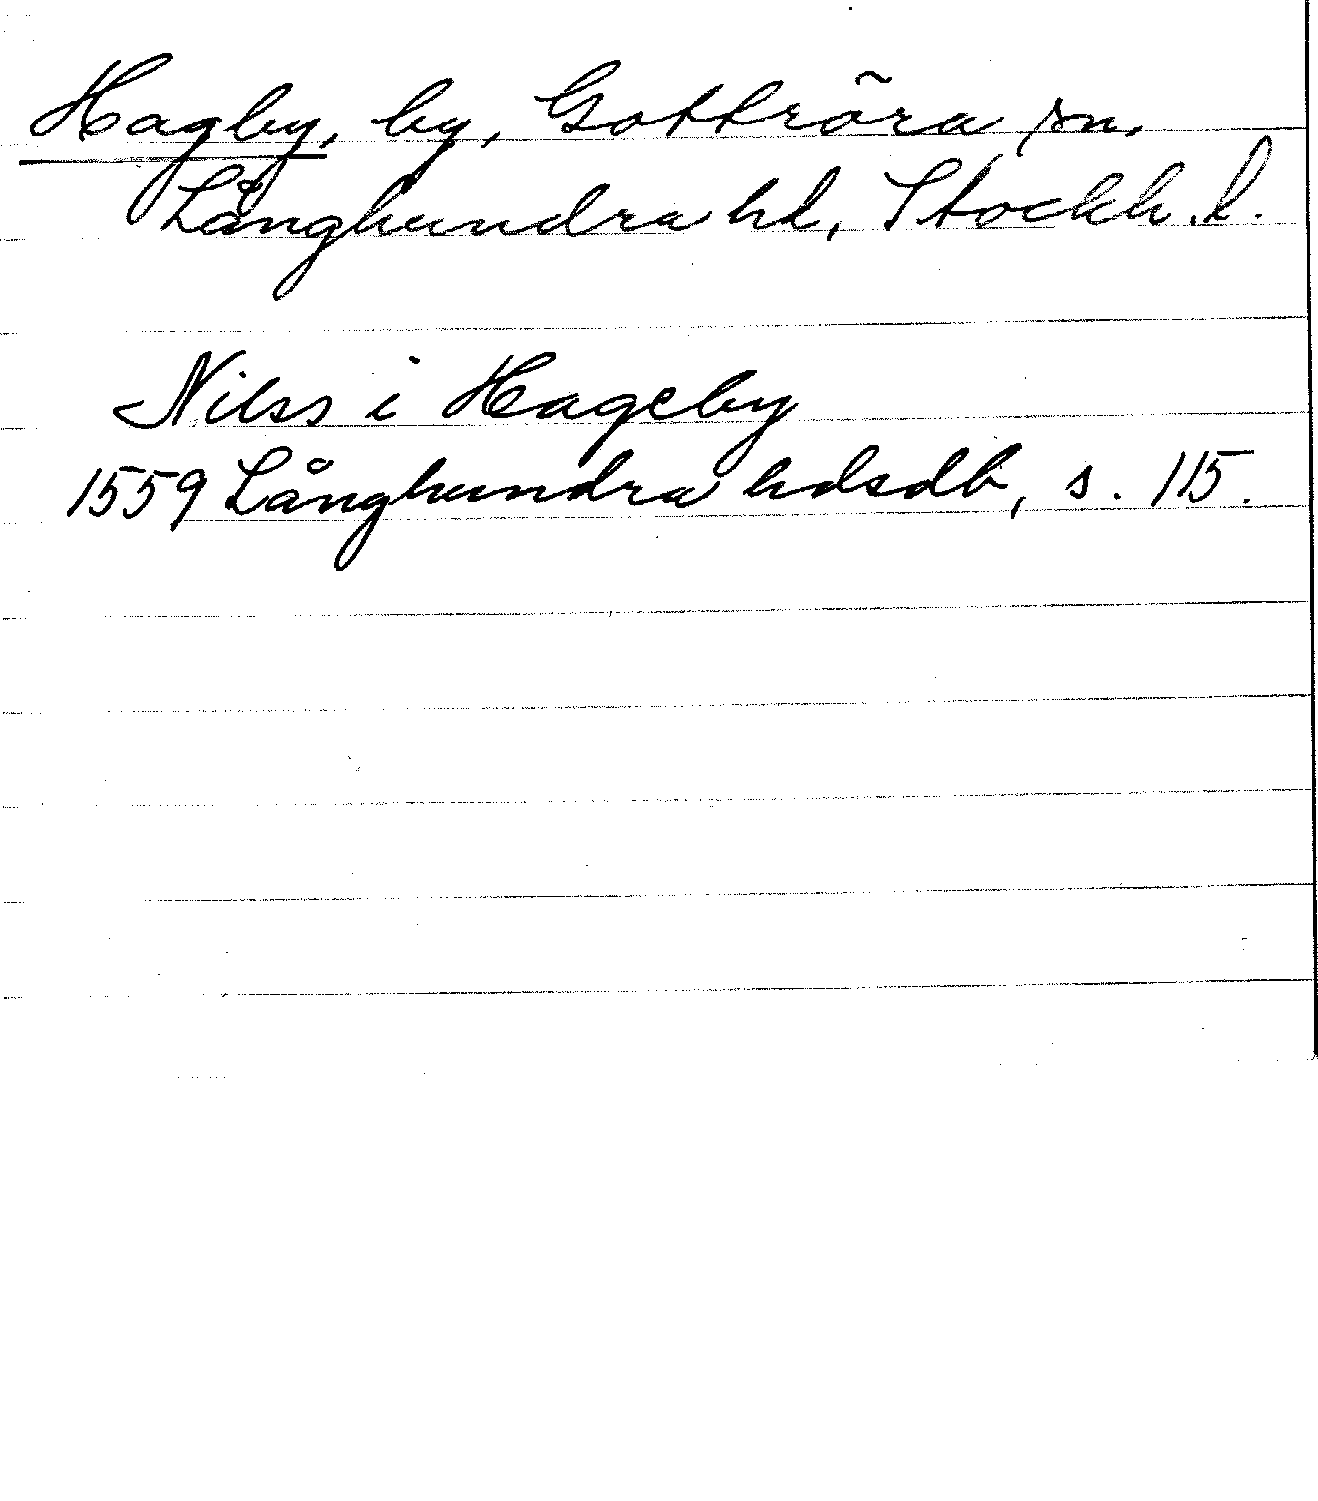 Hagby, by, Gottröra sn.
Långhundra hd, Stockh. l.
Nilss i Hageby
1559 Långhundra hdsdb, s. 115.